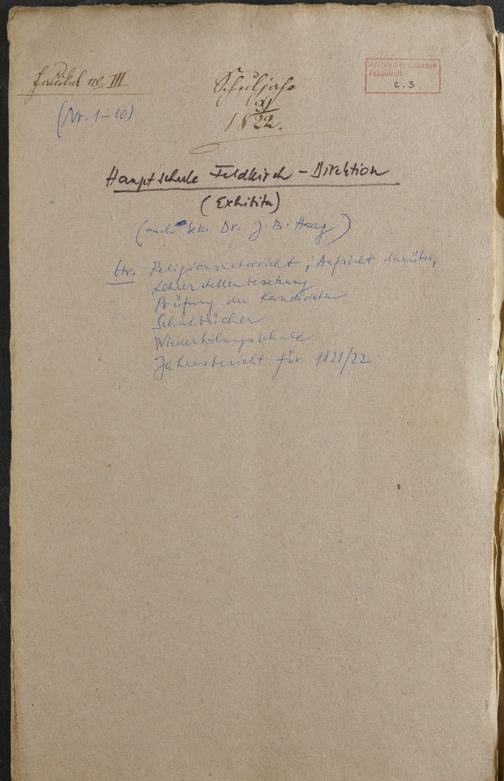 Faszikel No III
(Nr. 1-10)
Schuljahr
21/
1822.
Archiv der Diözese
Feldkirch
2.3.
Hauptschule Feldkirch - Direktion
(Exhibita)
(auch Dr. J. B. Haag)
btr. Religionsunterricht, Aufsicht darüber,
Lehrerstellenbesetzung
Prüfung der Kandidaten
Schulbücher
Wiederholungsschule
Jahresbericht für 1821/22